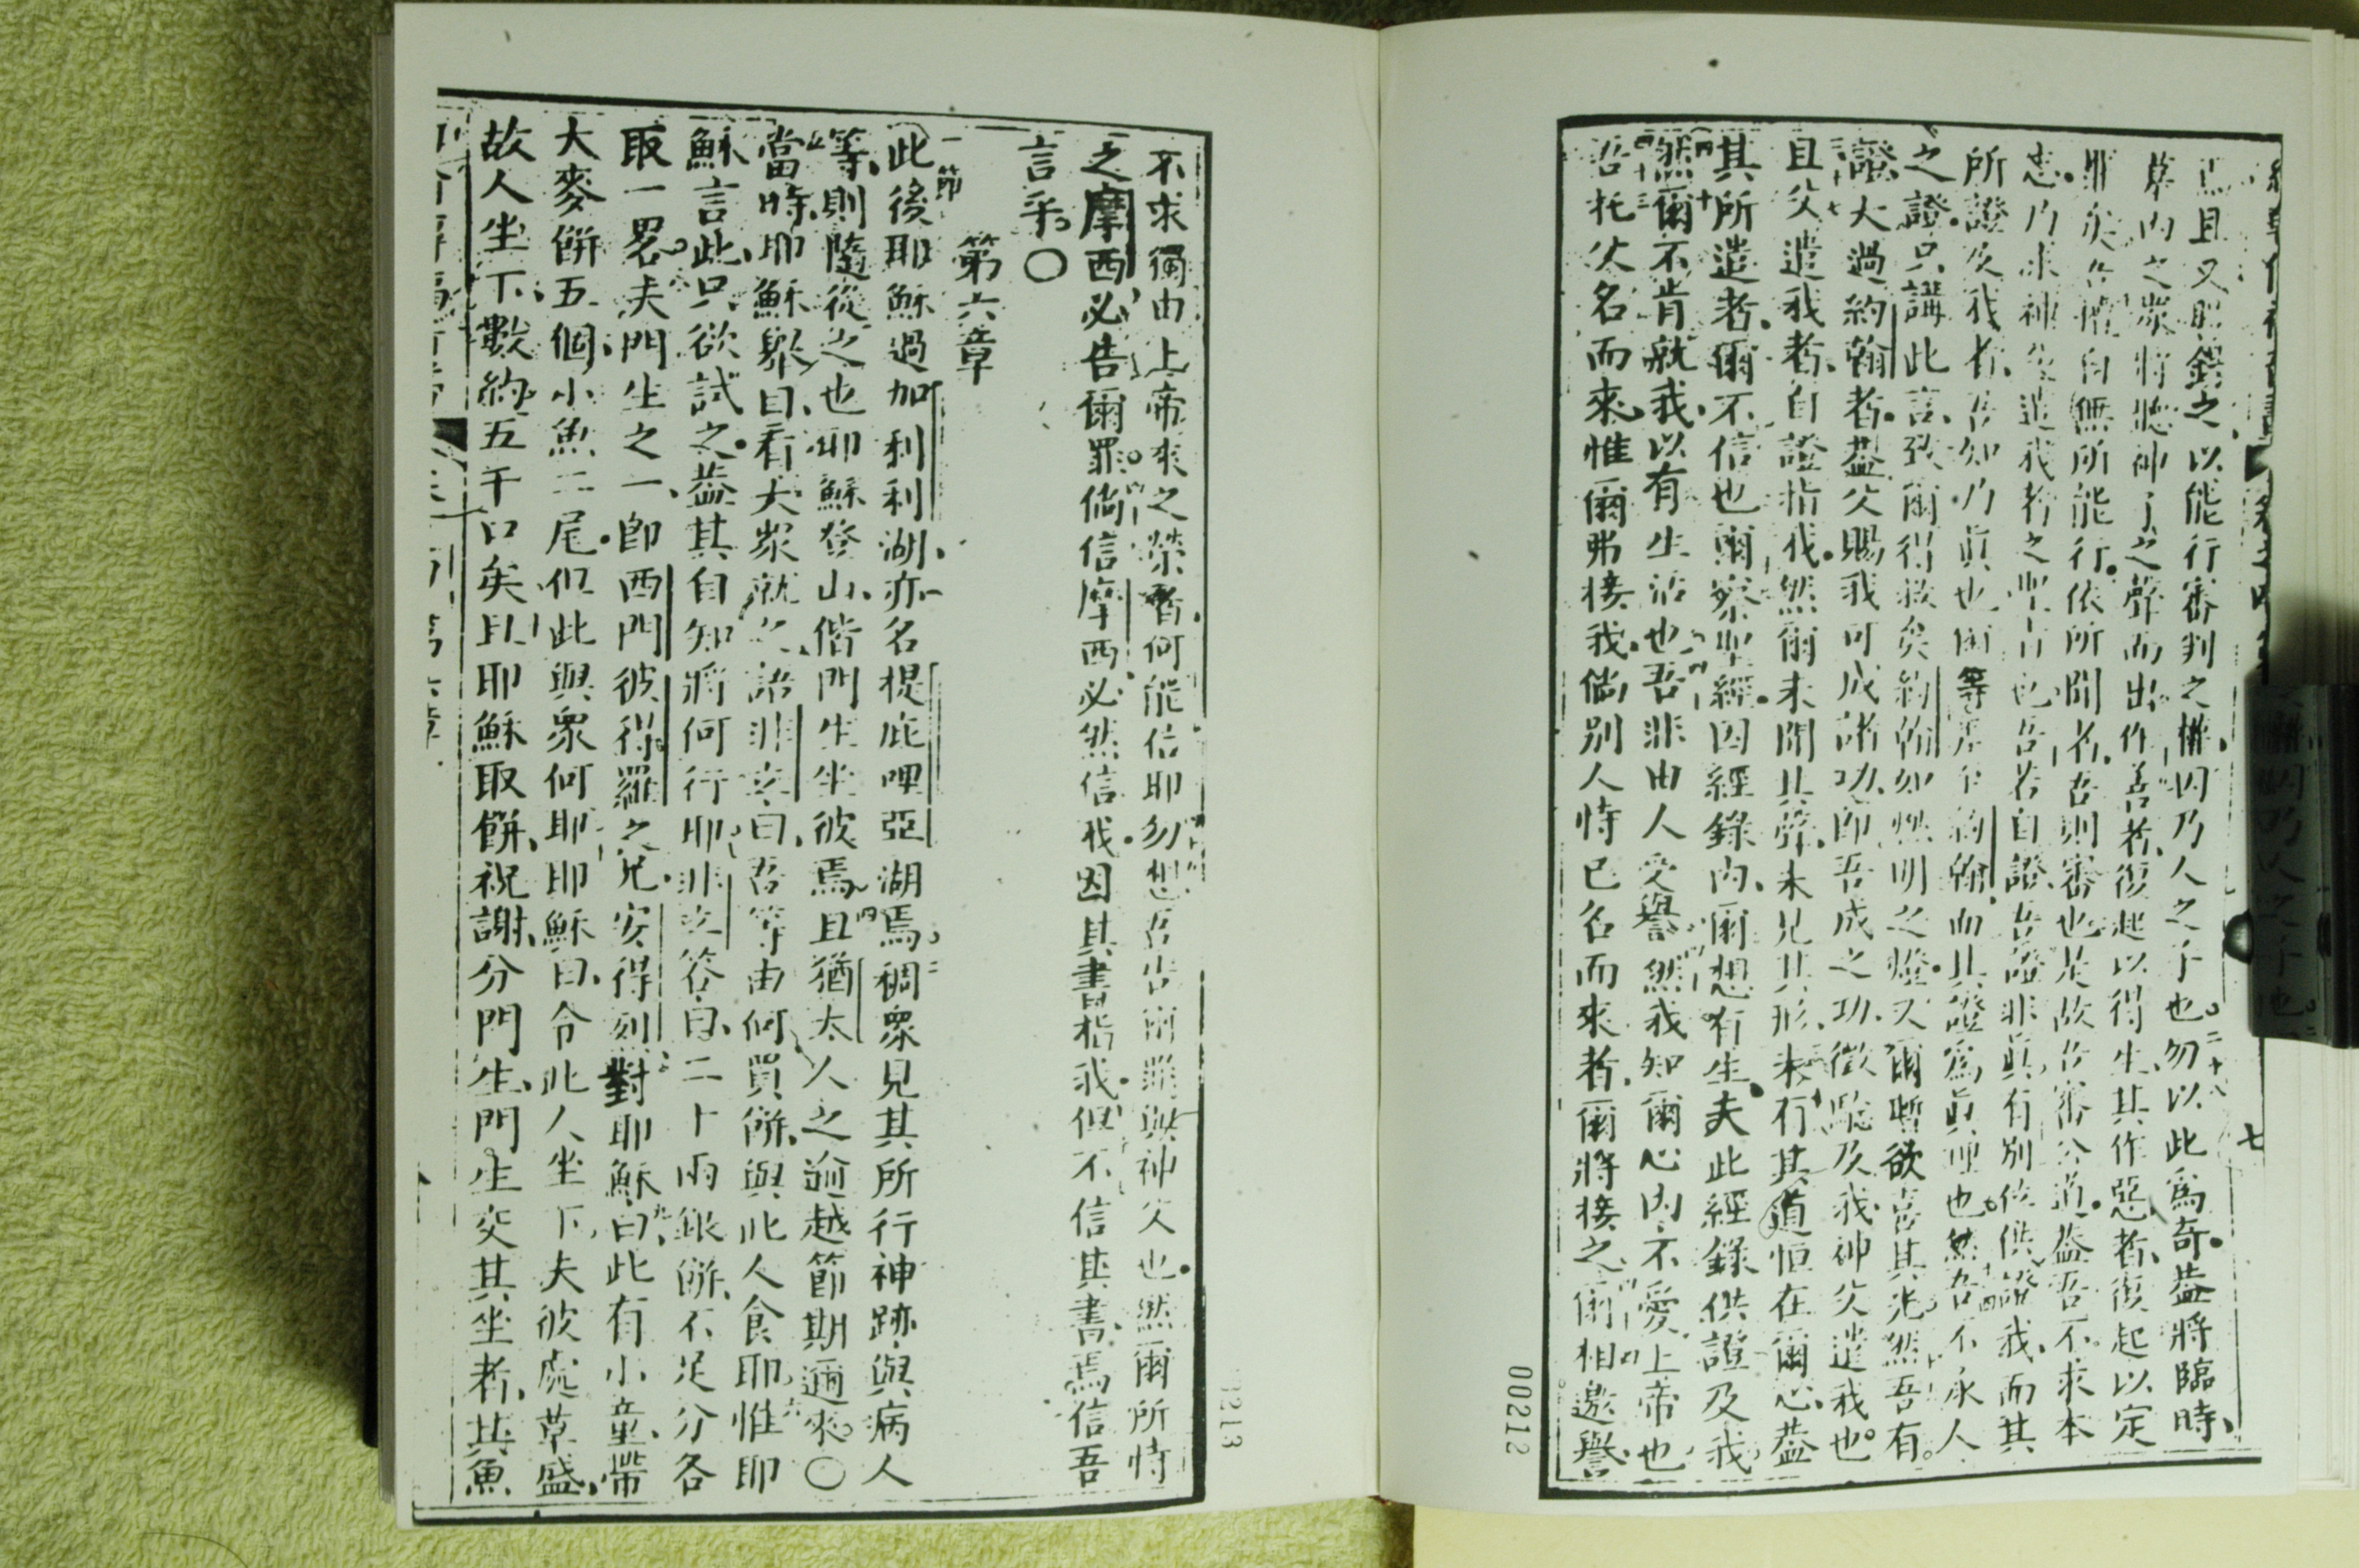 父且又賜之以能行審判之權因乃人之子也勿以此爲奇蓋將臨時
墓內之衆將聽神子之聲而出作善者復起以得生其作惡者復起以定
罪矣吾自無所能行依所聞者吾則審也是故吾審公道蓋吾不求本
志乃求神父遣我者之聖旨也吾若自證吾證非眞有別位供證我而其
所證及我者吾知乃眞也爾等差至約翰而其證爲眞理也然吾不承人
之證只講此言致爾得救矣約翰如燃明之燈又爾暫欲喜其光然吾有
證大過約翰者蓋父賜我可成諸功卽吾成之功徵驗及我神父遣我也
且父遣我者自證指我然爾未聞其聲未見其形未有其道恒在爾心蓋
其所遣者爾不信也爾察聖經因經錄內爾想有生夫此經錄供證及我
然爾不肯就我以有生活也吾非由人受譽然我知爾心內不愛上帝也
吾托父名而來惟爾弗接我倘別人恃己名而來者爾將接之爾相邀譽
七
00212
不求獨由上帝來之榮者何能信耶勿想吾告爾罪與神父也然爾所恃
之摩西必告爾罪倘信摩西必然信我因其書指我但不信其書焉信吾
言乎〇
第六章
一節
此後耶穌過加利利湖亦名提庇哩亞湖焉稠衆見其所行神跡與病人
等則隨從之也耶穌登山偕門生坐彼焉且猶太人之逾越節期邇來〇
當時耶穌舉目看大衆就之語非立曰吾等由何買餅與此人食耶惟耶
穌言此只欲試之蓋其自知將何行耶非立答曰二十兩銀餅不足分各
取一畧夫門生之一卽西門彼得羅之兄安得烈對耶穌曰此有小童帶
大麥餅五個小魚二尾但此與衆何耶耶穌曰令此人坐下夫彼處草盛
故人坐下數約五千口矣且耶穌取餅祝謝分門生門生交其坐者其魚